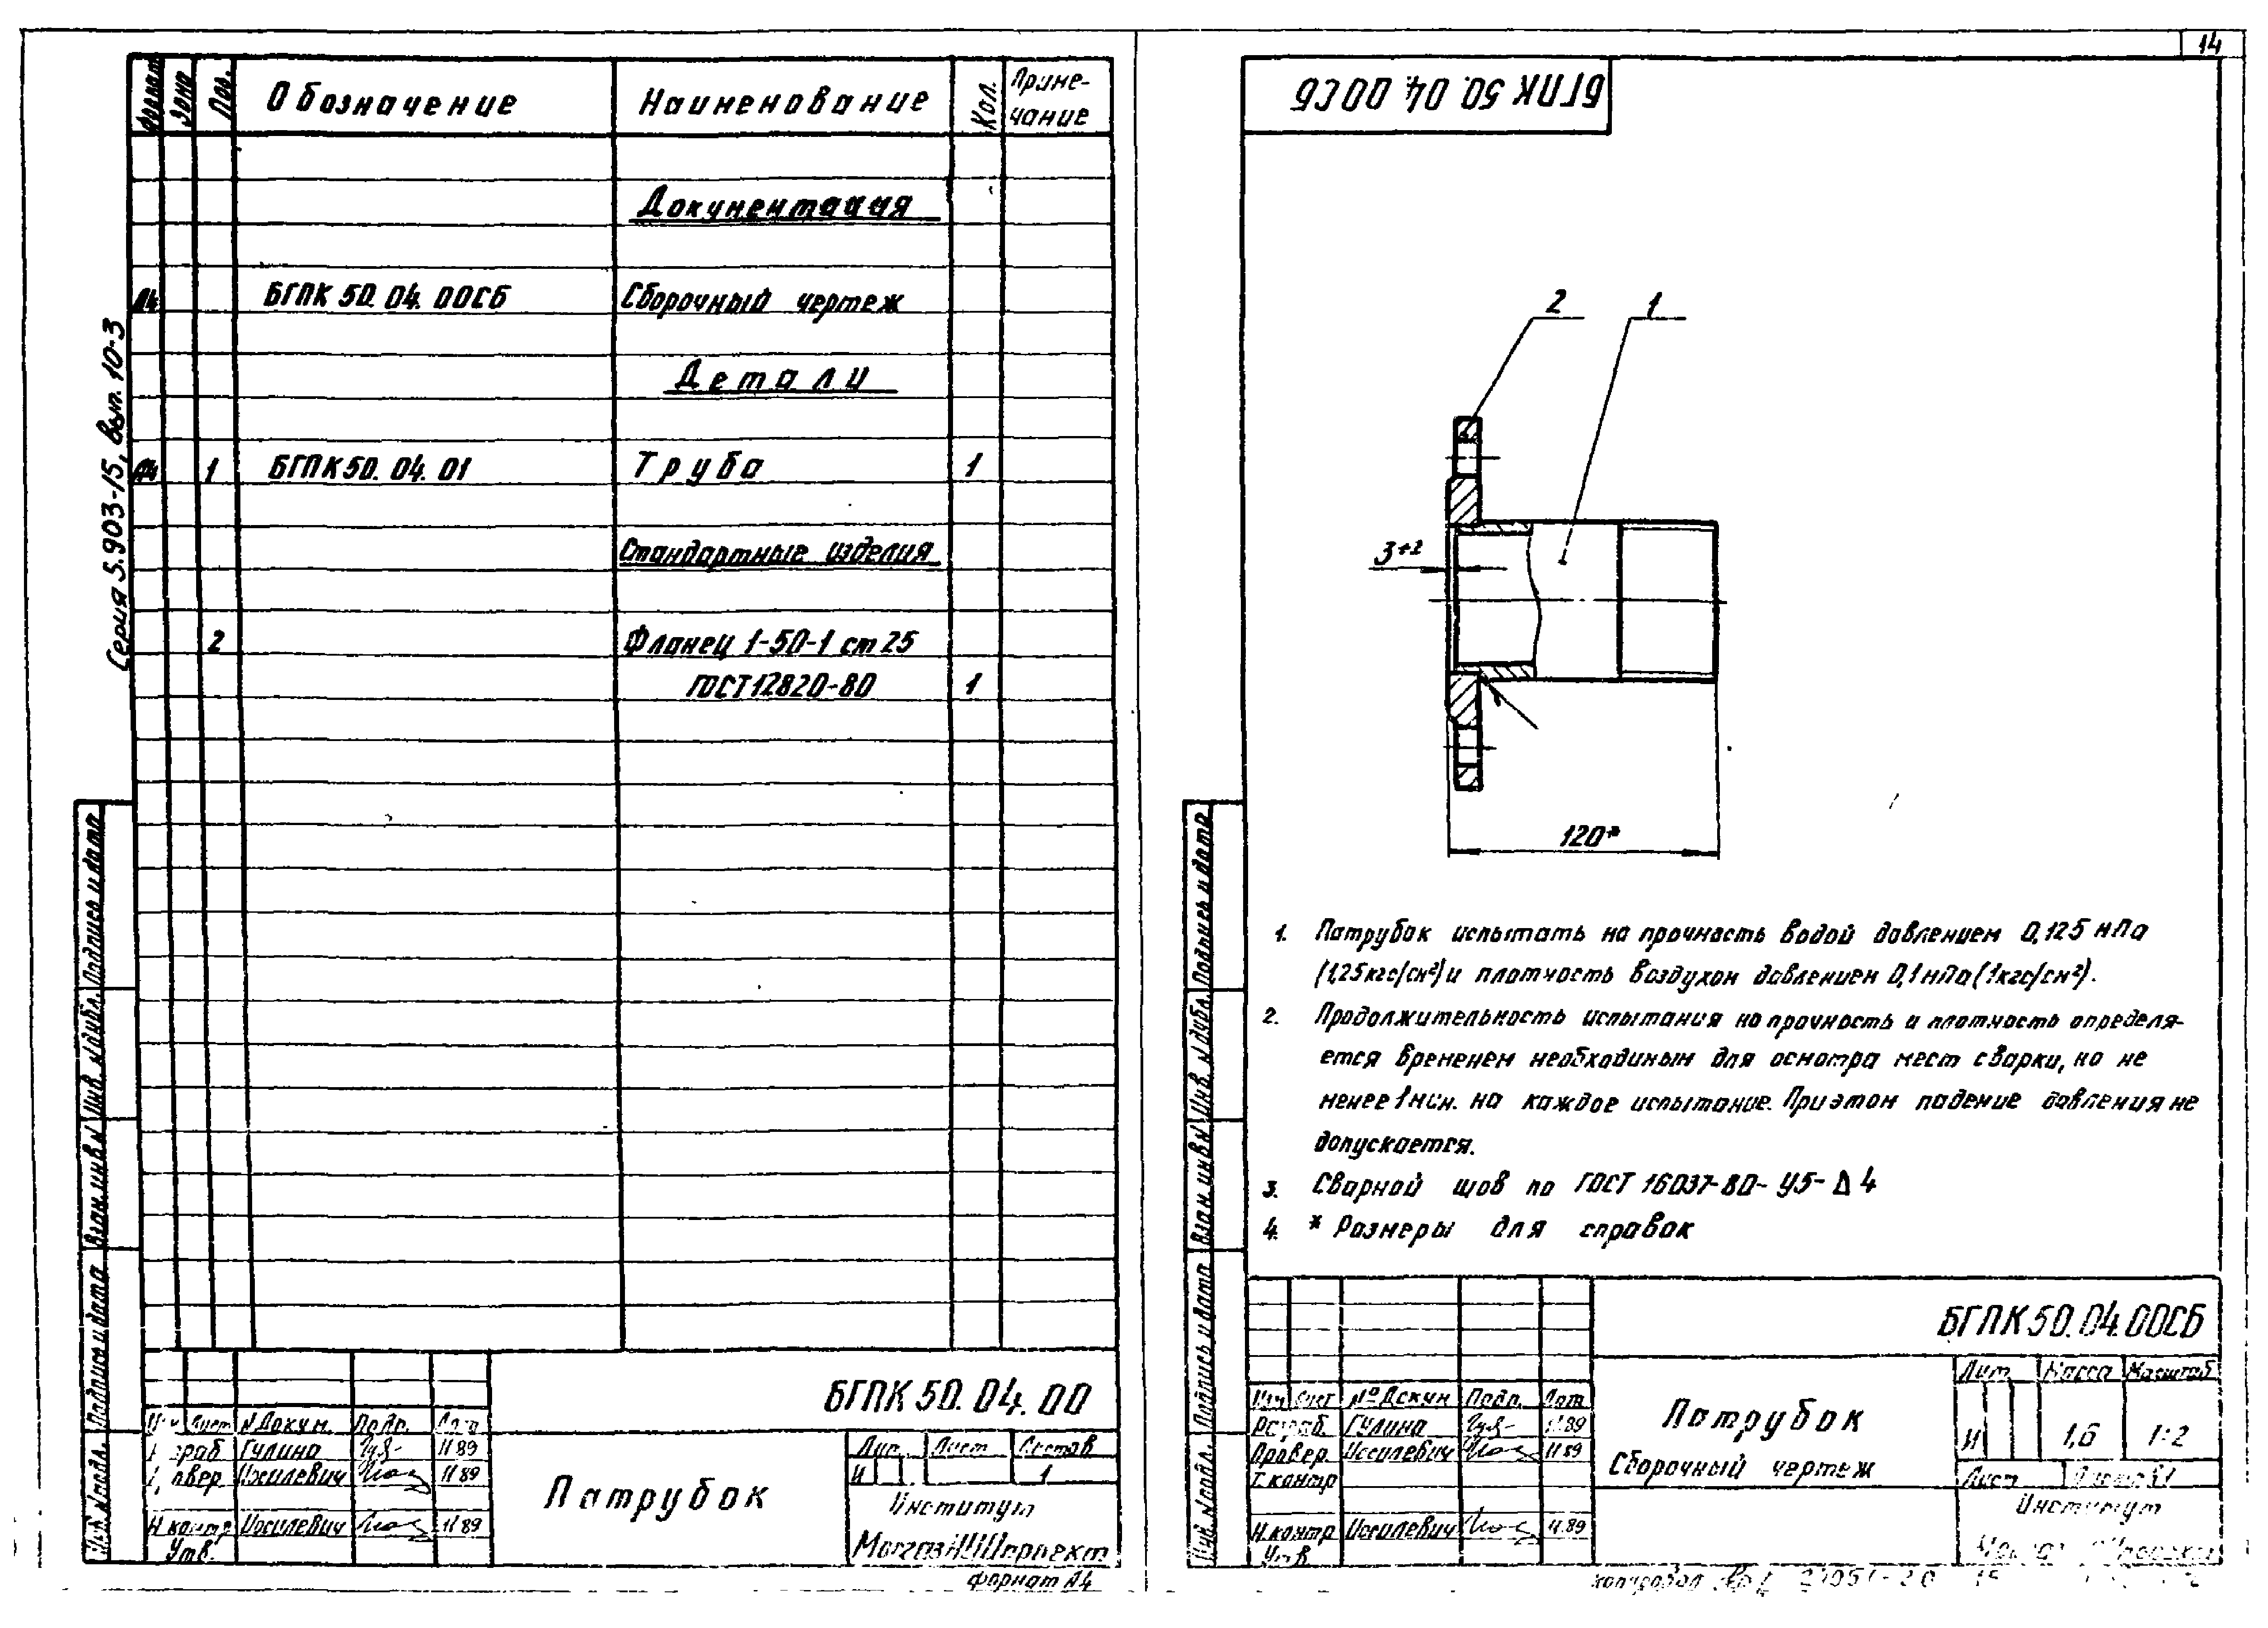 14
Формат Зона Поз. Обозначение Наименование Кол. Приме-
чание
Документация
А4 БГПК 50.04.00СБ Сборочный чертеж
Детали
А4 1 БГПК 50.04.01 Труба 1
Стандартные изделия
2 Фланец 1-50-1 ст 25
ГОСТ 12820-80 1
Серия 5.903-15, вып. 10-3
Подпись и дата
Инв. № дубл.
Взам. инв №
Подпись и дата
Инв. № подл.
БГПК 50.04.00
Изм Лист № Докум. Подп. Дата
Гулина 11 89
Иосилевич 11 89
Н.контр Иосилевич 11 89
Утв.
Патрубок
Лит. Лист Листов
И 1
Институт
МосгазНИИпроект
Формат А4
БГПК 50.04.00СБ
2 1
3⁺²
120*
1. Патрубок испытать на прочность водой давлением 0,125 мПа
(1,25кгс/см²) и плотность воздухом давлением 0,1 мПа (1кгс/см²).
2. Продолжительность испытания на прочность и плотность определя-
ется временем необходимым для осмотра мест сварки, но не
менее 1 мин. на каждое испытание. При этом падение давления не
допускается.
3. Сварной шов по ГОСТ 16037-80- У5- Δ 4
4. * Размеры для справок
Подпись и дата
Инв. № дубл.
Взам. инв №
Подпись и дата
Инв. № подл.
БГПК 50.04.00СБ
Изм Лист № Докум Подп. Дата
Разраб. Гулина 11 89
Провер. Иосилевич 11 89
Т.контр
Н.контр Иосилевич 11.89
Утв
Патрубок
Сборочный чертеж
Лит. Масса Масштаб
И 1,6 1:2
Лист Листов 1
Институт
Копировал